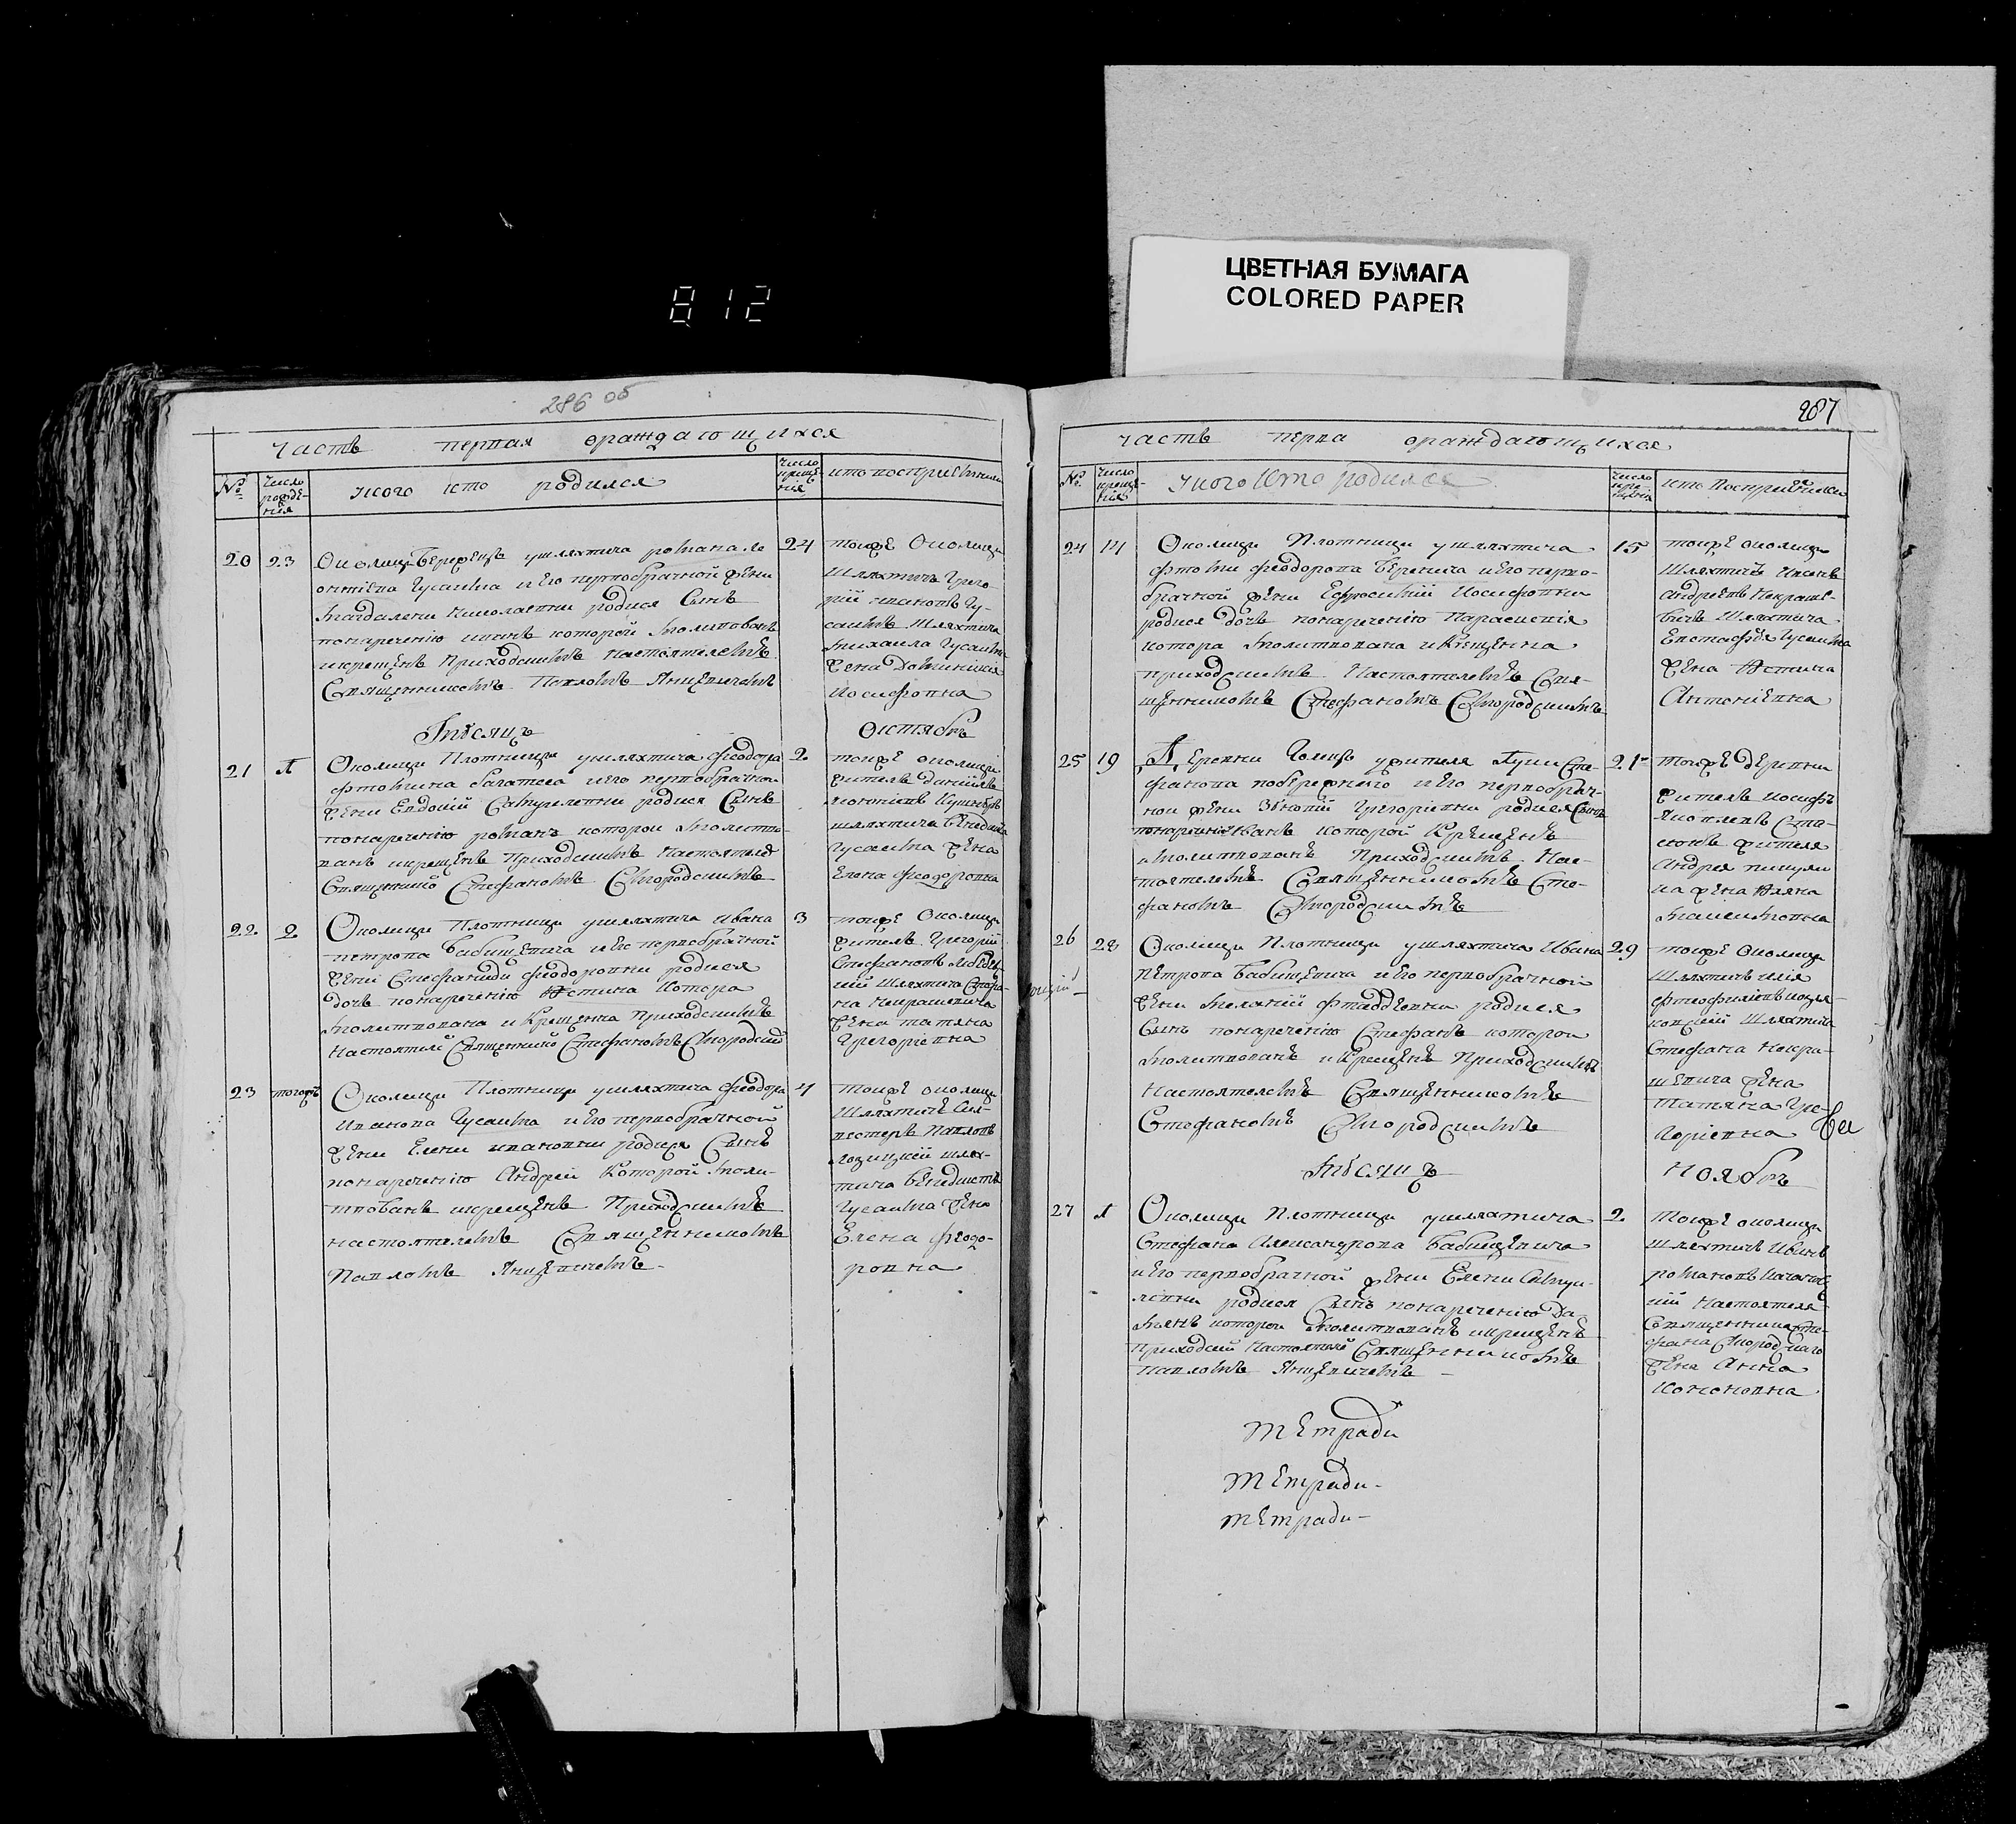 ЦВЕТНАЯ БУМАГА
COLORED PAPER
812
286 об
Часть первая ораждающихся
№ Число рожде-ния У кого кто родился Число креще-ния кто восприемники
20 23 Околицы Бережецъ у шляхтича романа ле 24
онтиева Гусаина и Его первобрачной жены
Магдалены Николаевны родися Сынъ
понаречению иванъ которой молитвованъ
икрещенъ Приходскимъ настоятелемъ
Священникомъ Павломъ
тоиже Околицы
Шляхтичъ Григо-
рий ивановъ Гу-
саимъ Шляхтича
михаила Гусаима
жена Доминикия
иосифовна
Месяцъ Октябрь
21 1 Околицы Плотницы ушляхтича феодора 2
жены Евдокий Самуиловны родися Сынъ
понаречению романъ которои молитво-
ванъ икрещенъ Приходскимъ Настоятеле
Священнико Стефаномъ Смородскимъ
тоиже околицы
житель
шляхтича Венедикта
Гусаима жена
Елена феодоровна
22 2 Околицы Плотницы ушляхтича Ивана 3
петрова Бабицевича иего первобрачной
жены Стефаниды феодоровны родися
дочь понаречению Юстина Котора
молитвована и Крещенна приходскимъ
Настоятеле Священнико Стефаномъ Смородски
тоиже Околицы
житель Григорий
Стефановъ
жена татяна
Григориевна
23 тогожъ Околицы Плотницы ушляхтича феодора 4
Иванова Гусаима иего первобрачной
жены Елены ивановны родися Сынъ
понаречению Андрей Которой моли-
твованъ икрещенъ Приходскимъ
настоятелемъ Священникомъ
Павломъ
тоиже околицы
Шляхтичъ Сил-
вестеръ Павловъ
Лозицкий шлях-
тича Венедикта
Гусаима жена
Елена феодо-
ровна
287
часть перва ораждающихся
№ Число креще-ния У кого Кто родился Число кре-щения кто Восприемники
24 14 Околицы Плотницы ушляхтича 15
фомы феодорова Беренича иего перво-
брачной жены Ефросинии Иосифовны
родися дочь понаречению Параскевия
котора молитвована и Крещенна
приходскимъ Настоятелемъ Свя-
щенникомъ Стефаномъ Смородскимъ
тоиже околицы
Шляхтичъ Иванъ
андреевъ Некраше-
вичъ Шляхтича
Евстафия Гусаима
жена Юстина
Антониевна
25 19 Деревни Големцъ ужителя Луки Сте- 21
фанова побережного иего первобрач-
нои жены Зеновий Григориевны родися Сынъ
понаречению Иванъ которой Крещенъ
имолитвованъ Приходскимъ Нас-
тоятелемъ Священникомъ Сте-
фаномъ Смородскимъ
тоиже деревни
житель Иосифъ
Яковлевъ
житела
Андрея
жена Уляна
Максимовна
26 28 Околицы Плотницы ушляхтича Ивана 29
Петрова Бабицевича иего первобрачной
жены Мелании фаддеевны родися
Сынъ понаречению Стефанъ которои
молитвованъ и Крещенъ Приходскимъ
Настоятелемъ Священникомъ
Стефаномъ Смородскимъ
тоиже Околицы
Шляхтичъ илия
Шляхтича
Стефана Некра-
шевича жена
Татяна Гри-
гориевна
Месяцъ Ноябрь
27 1 Околицы Плотницы ушляхтича 2
Стефана Александрова Бабицевича
иего первобрачной жены Елены Самуи-
ловны родися Сынъ понаречению Да-
мянъ которои молитвованъ икрещенъ
приходски Настоятеле Священникомъ
Павломъ
Тоиже околицы
шляхтичъ Иванъ
романовъ
Настоятеля
Священника Сте-
фана Смородскаго
жена Анна
Кононовна
Тетради
Тетради-
тетради-